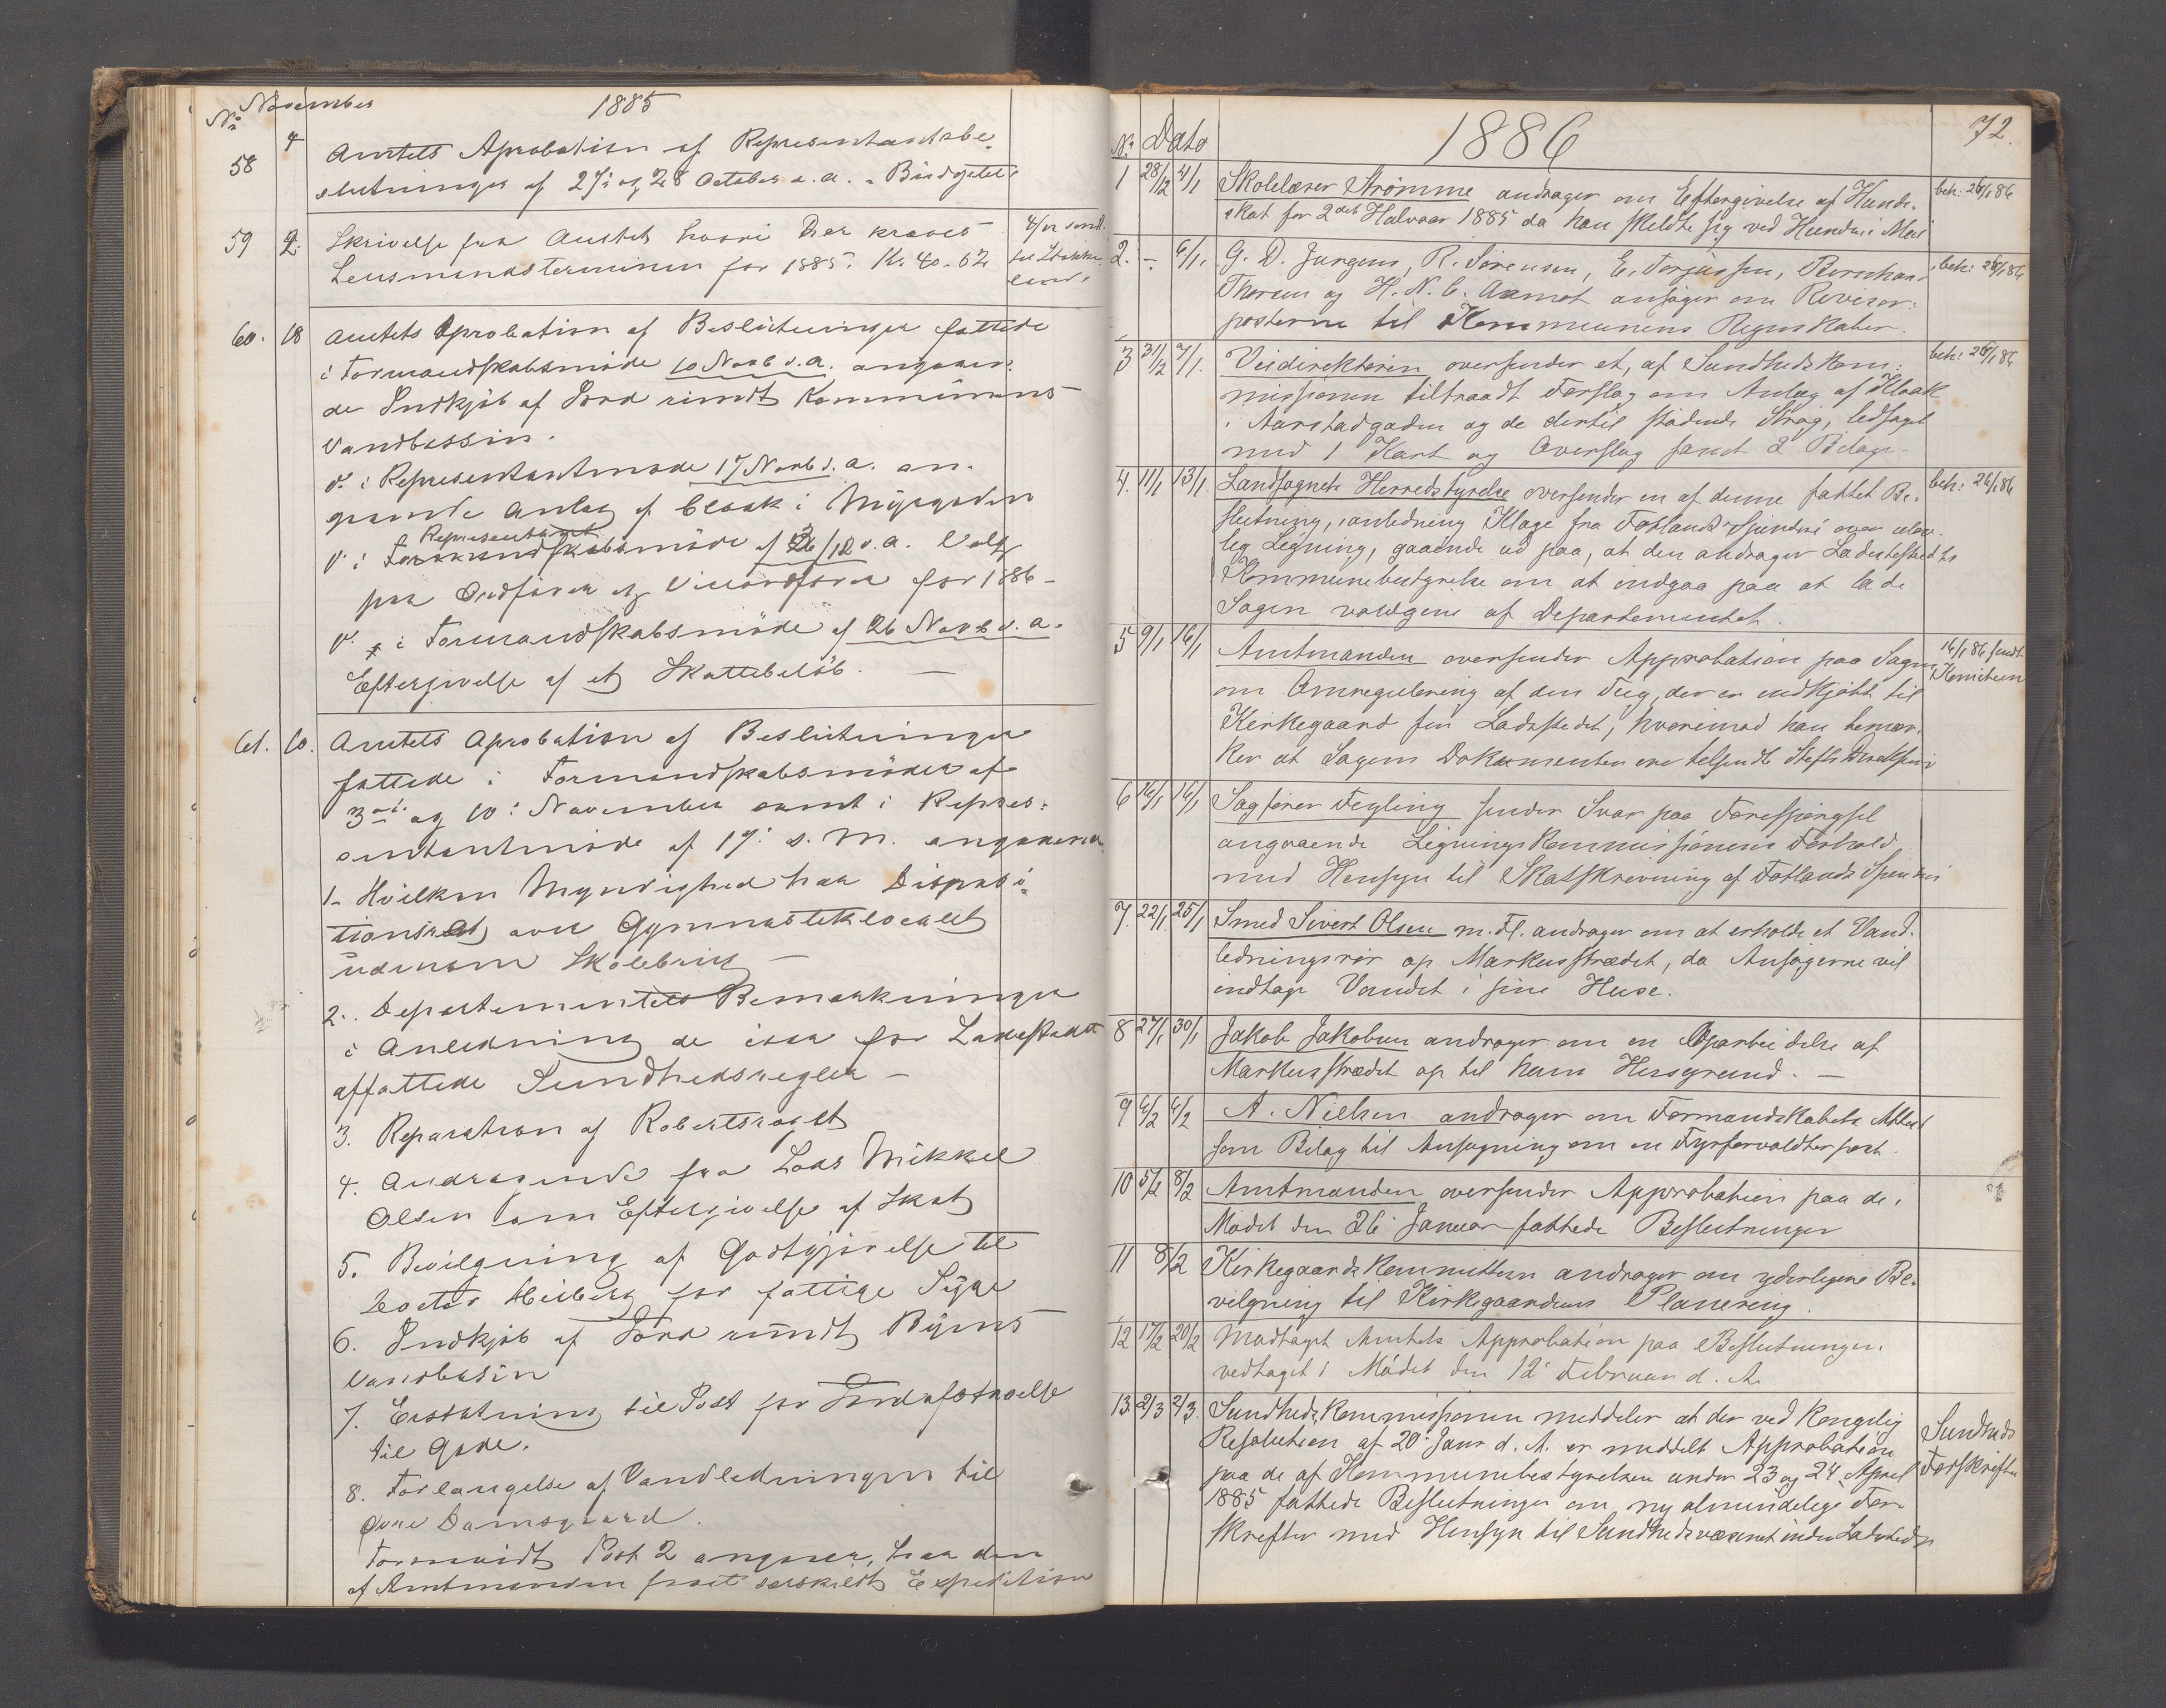 No November 1885
58 4 Amtets Aprobation af Representantabe-
slutninger af 27: og 28 October d. a. - Budgettet
59 2. Skrivelse fra Amtet hvori Der kræves 4/12 send.
Lensmandsterminen for 1885. Kr. 40.62 til
60. 18 Amtets Aprobation af Beslutninger fattede
i Formandskabsmøde 10 Novb d. a. angaaen-
de Indkjøb af Jord rundt Kommunens
Vandbassin.
do i Representantmøde 17 Novb d. a. an-
gaaende Anlæg af Cloak i Myrgaden
Representant
do i Formandskabsmøde af 26/12 d. a. Valg
paa Ordfører og Viceordfører for 1886 -
do i Formandskabsmøde af 26 Novb d. a.
Eftergivelse af et Skattebeløb. —
61. 10. Amtets Aprobation af Beslutninger
fattede i Formandskabsmøder af
3die og 10: November samt i Repres-
entantmøde af 17: s. M. angaaende
1. Hvilken Myndighed har Disposi-
tionsret over Gymnastiklocalet
udenom Skolebrug —
2. Departementets Bemærkninger
i Anledning de især for Ladestedet
affattede Sundhedsregler —
3. Reparation af
4. Andragende fra Lods Mikkel
Olsen om Eftergivelse af Skat
5. Bevilgning af Godtgjørelse til
Doctor Heiberg for fattige Syge
6. Indkjøb af Jord rundt Byens
Vandbasin
7. Erstatning til Post for Jordafstaaelse
til Gade.
8. Forlængelse af Vandledningen til
Øvre Damsgaard.
Forsaavidt Post 2 angaaer, har den
af Amtmanden faaet særskildt Expedition
No Dato 1886 72.
1 28/12 4/1 Skolelærer Strømme andrager om Eftergivelse af Hunde- beh: 26/1 86
skat for 2det Halvaar 1885 da han skildte sig ved Hunden i Mai
2. - 6/1. G. D. Jurgens, R. Sørensen, E. Terjussen, Bernhard beh: 26/1 86
Thorsen og H. N. C. Aamot ansøger om Revisor-
posterne til Kommunens Regnskaber.
3 31/12 7/1. Veidirektøren oversender et, af Sundhedskom- beh: 26/1 86
missionen tiltraadt Forslag om Anlæg af Kloak
i Aarstadgaden og de dertil stødende Strøg, ledsaget
med 1 Kart og Overslag samt 2 Bilage.
4. 11/1 13/1. Landsognets Herredstyrelse oversender en af denne fattet Be- beh: 26/1 86
slutning, i anledning Klage fra Fotlands Spinderi over ulov-
lig Ligning, gaaende ud paa, at den andrager Ladestedets
Kommunebestyrelse om at indgaa paa at lade
Sagen voldgive af Departementet.
5 9/1 16/1 Amtmanden oversender Approbation paa Sagen 16/1 86 sendt
om Omregulering af den Teig, der er indkjøbt til Komiteen
Kirkegaard for Ladestedet, hvorimod han bemær-
ker at Sagens Dokumenter ere tilsendt Stiftsdirektionen
6 14/1 16/1 Sagfører Feyling sender Svar paa Forespørgsel
angaaende Ligningskommissionens Forhold
med Hensyn til Skatskrevning af Fotlands Spinderi
7. 22/1. 25/1 Smed Sivert Olsen m. Fl. andrager om at erholde et Vand-
ledningsrør op Markusstrædet, da Ansøgerne vil
indtage Vandet i sine Huse.
8 27/1 30/1 Jakob Jakobsen andrager om en Oparbeidelse af
Markusstrædet op til hans Husgrund. —
9 4/2 4/2 A. Nielsen andrager om Formandskabets Attest
som Bilag til Ansøgning om en Fyrforvalterpost.
10 5/2 8/2 Amtmanden oversender Approbation paa de i
Mødet den 26 Januar fattede Beslutninger
11 8/2 Kirkegaardskommitteen andrager om yderligere Be-
vilgning til Kirkegaardens Planering.
12 17/2 20/2 Modtaget Amtets Approbation paa Beslutninger
vedtaget i Mødet den 12: Februar d. A.
13. 2/3 2/3. Sundhedskommissionen meddeler at der ved kongelig Sundheds
Resolution af 20: Janr d. A. er meddelt Approbation Forskrifter
paa de af Kommunebestyrelsen under 23 og 24 April
1885 fattede Beslutninger om ny almindelige For-
skrifter med Hensyn til Sundhedsvæsenet inden Ladestedet